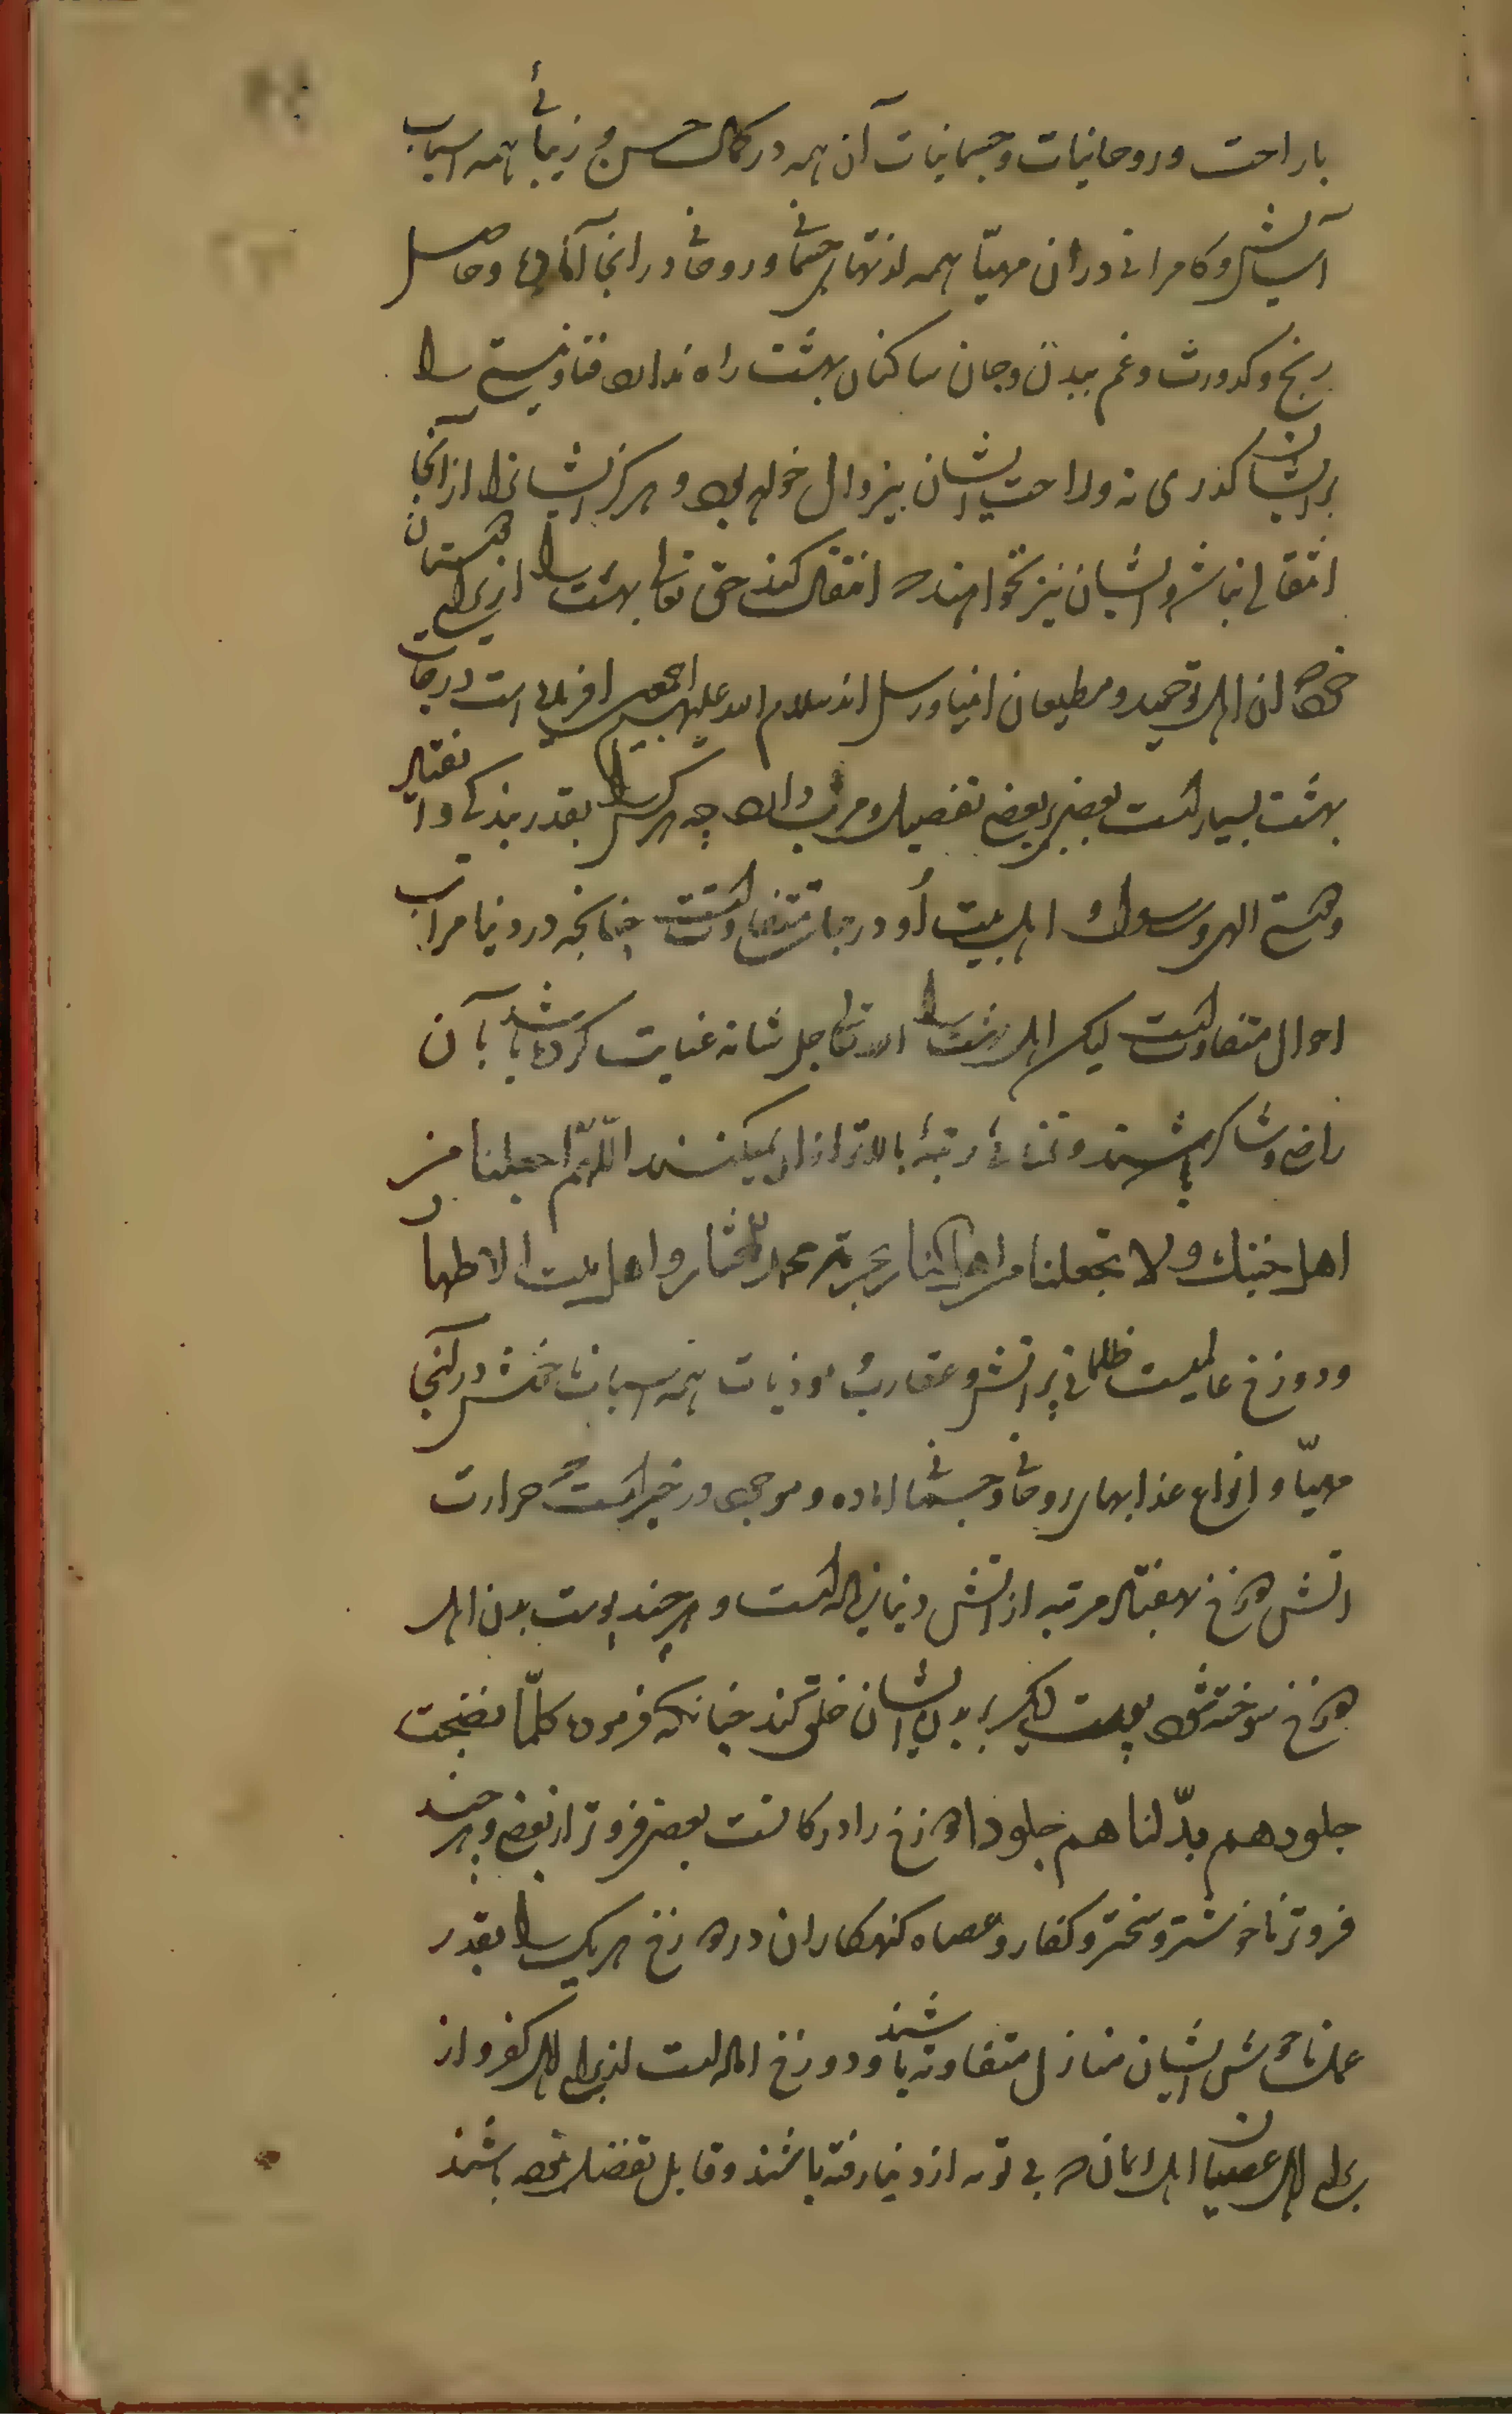 باراحت و روحانیات و جسمانیات آن همه در کمال حسن و زیبائی همه اسباب
آسایش و کامرانی در ان مهیّا همه لذتهای جسمانی و روحانی در انجا آماده و حاصل
رنج و کدورت و غم ببدن و جان ساکنان بهشت راه ندارد فنا و نیستی را
بر ایشان گذری نه و راحت ایشان بیزوال خواهد بود و هرگز ایشانرا از آنجا
انتقالی نباشد و ایشان نیز نخواهند که انتقال کنند حق تعالی بهشت را از برای دوستان
خود که ان اهل توحید و مطیعان انبیا و رسل اند سلام الله علیهم اجمعین افریده است درجات
بهشت بسیار است بعضی بر بعضی تفصیل و مزیت دارد چه هر کس را بقدر بندگی و انقیاد
و دوستی الهی و رسول و اهل بیت او درجات متفاوتست چنانچه در دنیا مراتب
احوال متفاوتست لیکن اهل بهشت را الله تعالی جل شانه عنایت کرده باشد بآن
راضی و شاکر باشند و تمنائی رتبهٔ بالاتر از ان نمیکنند اللّهمّ اجعلنا من
اهل جنتك و لا تجعلنا من اهل النار بحرمة محمد المختار و اهل بیته الاطهار
و دوزخ عالمیست ظلمانی پر اتش و عقارب و موذیات همه اسباب ناخوش در آنجا
مهیّا و انواع عذابهای روحانی و جسمانی اماده و موجود در خبر است که حرارت
اتش دوزخ هفتاد مرتبه از اتش دنیا زیاده است و هر چند پوست بدن اهل
دوزخ سوخته شود پوست دیگر بر بدن ایشان خلق کند چنانکه فرموده کلّما نضجت
جلودهم بدّلناهم جلودا دوزخ را درکاتست بعضی فروتر از بعضی و هر چند
فروتر ناخوشتر و سختتر و کفار و عصاه گنهکاران در دوزخ هریک را بقدر
عمل ناخوش ایشان منازل متفاوته باشند و دوزخ اماده است از برای اهل کفر و از
برای اهل عصیان اهل ایمان که بی توبه از دنیا رفته باشند و قابل تفضل نه باشند